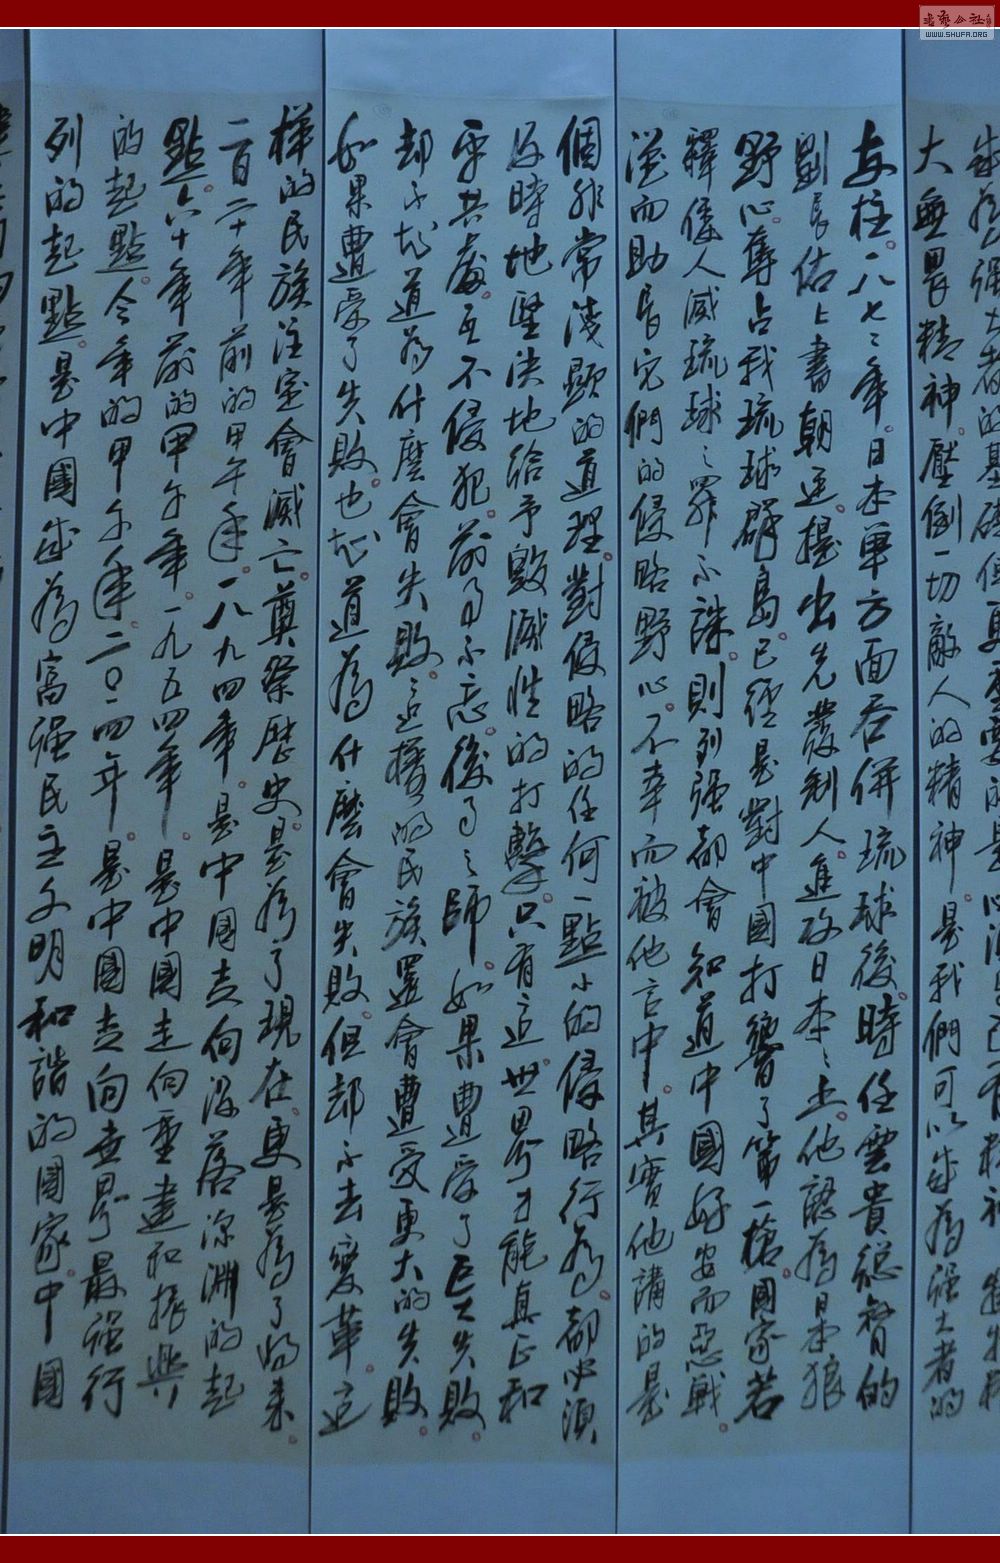 大無畏精神。壓倒一切敵人的精神。是我們可以成為强大者的
支柱。一八七二年。日本單方面吞併琉球後。時任雲貴總督的
劉長佑上書朝廷提出先發制人進攻日本本土。他認為日本狼
野心。奪占我琉球群島。已經是對中國打響了第一槍。國家若
釋倭人滅琉球之罪而不誅。則列强都會知道中國好安而惡戰
從而助長它們的侵略野心。不幸而被他言中。其實他講的是
個非常淺顯的道理。對侵略的任何一點小的侵略行為。都必須
及時地堅決地給予毀滅性的打擊。只有這世界才能真正和
平共處。互不侵犯。前事不忘。後事之師。如果遭受了巨大失敗。
却不知道為什麽會失敗。這樣的民族還會遭受更大的失敗。
如果遭受了失敗。也知道為什麽會失敗。但却不去變革。這
樣的民族注定會滅亡。奠祭歷史。是為了現在更是為了將來。
一百二十年前的甲午年。一八九四年。是中國走向沒落深淵的起
點。六十年前的甲午年。一九五四年。是中國走向重建和振興
的起點。今年的甲午年。二〇一四年。是中國走向世界最强行
列的起點。是中國成為富强民主文明和諧的國家。中國
書藝公社
WWW.SHUFA.ORG